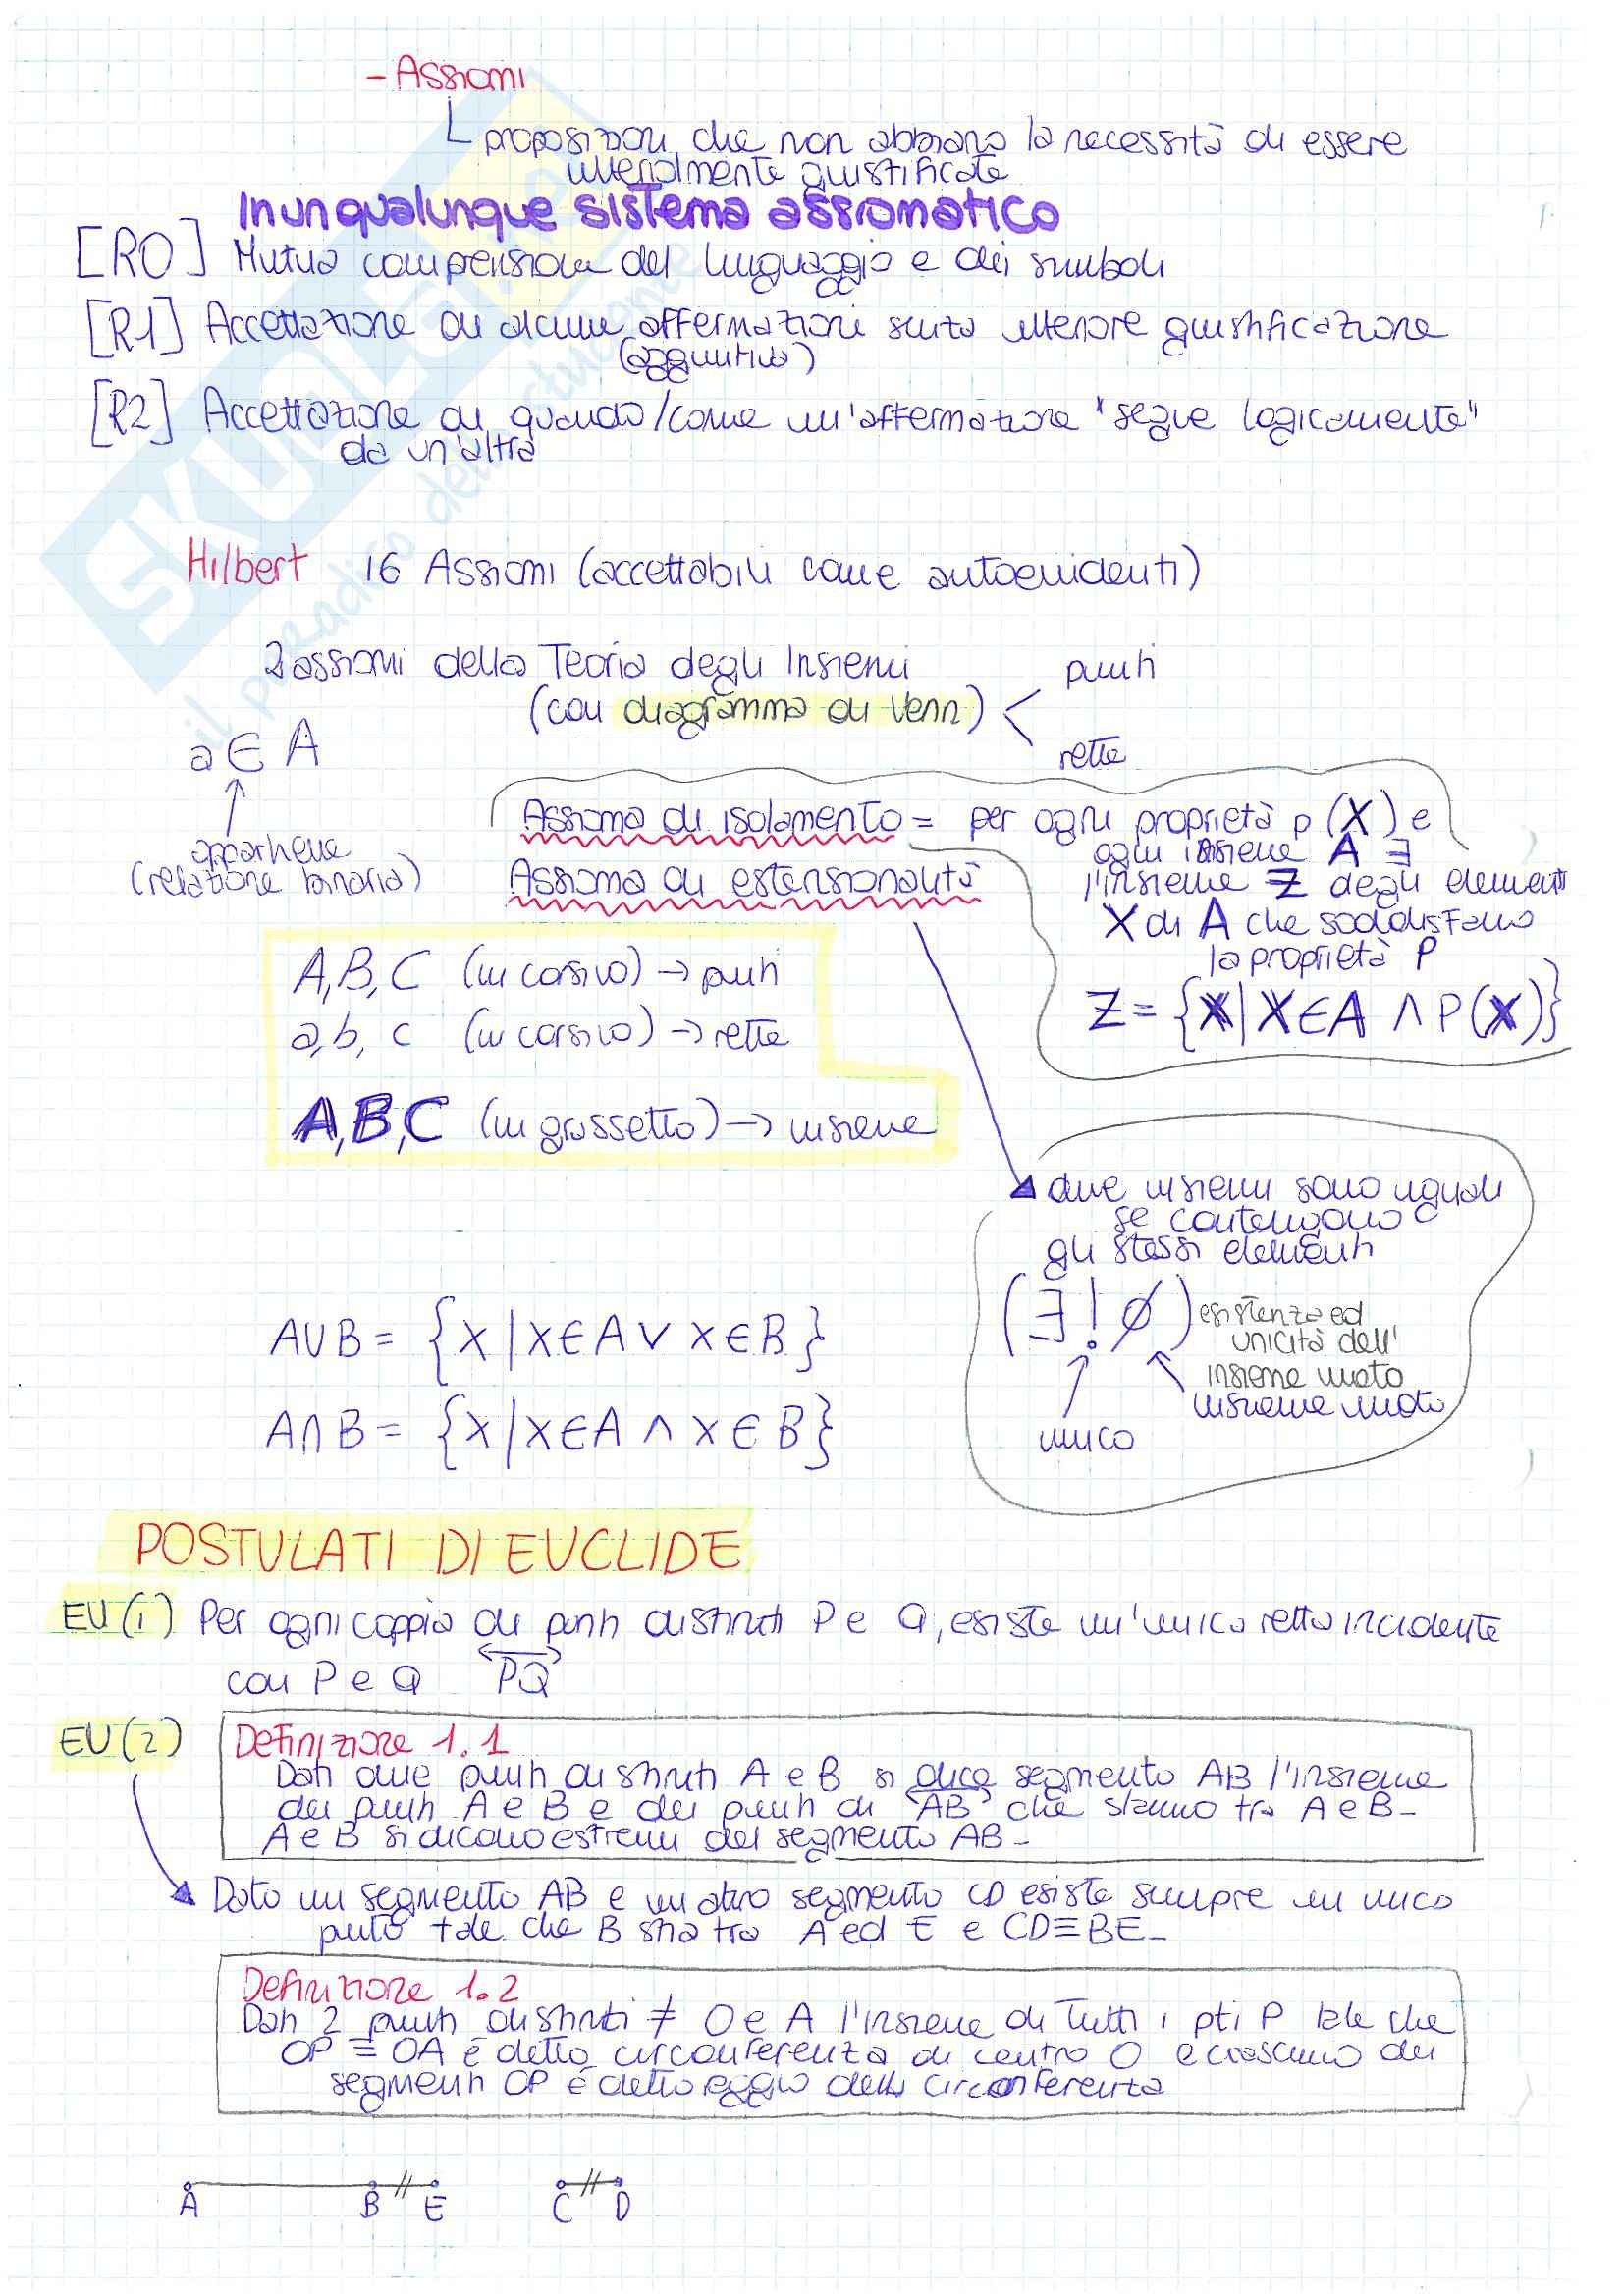 - Assiomi
proposizioni che non abbiano la necessità di essere
ulteriormente giustificate
In un qualunque sistema assiomatico
[R0] Mutua comprensione del linguaggio e dei simboli
[R1] Accettazione di alcune affermazioni senza ulteriore giustificazione
(aggiuntiva)
[R2] Accettazione di quando/come un'affermazione "segue logicamente"
da un'altra
Hilbert 16 Assiomi (accettabili come autoevidenti)
2 assiomi della Teoria degli Insiemi
punti
(con diagramma di Venn)
rette
a ∈ A
appartiene
(relazione binaria)
Assioma di isolamento = per ogni proprietà p (X) e
ogni insieme A ∃
l'insieme Z degli elementi
X di A che soddisfano
la proprietà P
Z = {X | X ∈ A ∧ P(X)}
Assioma di estensionalità
A, B, C (in corsivo) → punti
a, b, c (in corsivo) → rette
A, B, C (in grassetto) → insieme
due insiemi sono uguali
se contengono
gli stessi elementi
(∃! ∅) esistenza ed
unicità dell'
insieme vuoto
insieme vuoto
unico
A∪B = {x | x∈A ∨ x∈B}
A∩B = {x | x∈A ∧ x∈B}
POSTULATI DI EUCLIDE
EU(1) Per ogni coppia di punti distinti P e Q, esiste un'unica retta incidente
con P e Q PQ
EU(2)
Definizione 1.1
Dati due punti distinti A e B si dice segmento AB l'insieme
dei punti A e B e dei punti di AB che stanno tra A e B-
A e B si dicono estremi del segmento AB-
Dato un segmento AB e un altro segmento CD esiste sempre un unico
punto tale che B stia tra A ed E e CD≡BE-
Definizione 1.2
Dati 2 punti distinti ≠ O e A l'insieme di Tutti i pti P tale che
OP ≡ OA è detto circonferenza di centro O e ciascuno dei
segmenti OP è detto raggio della circonferenza
A B E C D
SKUOLA
il paradiso dello studente